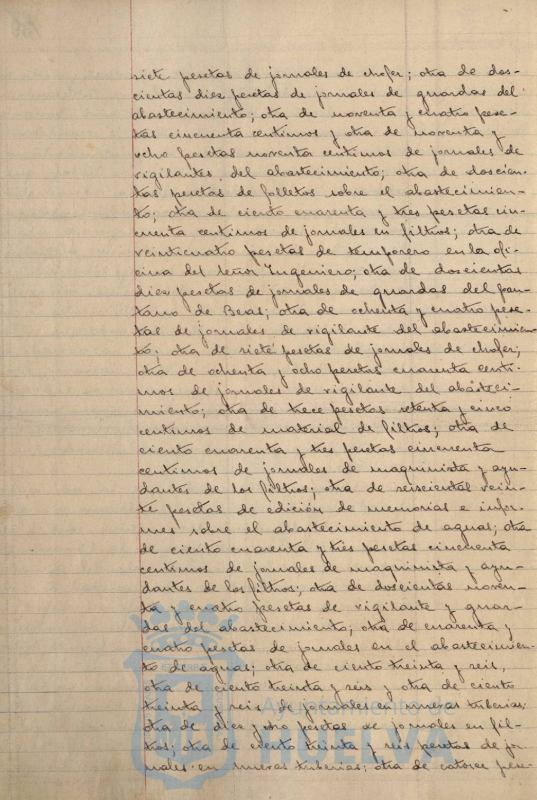 siete pesetas de jornales de chofer; otra de dos-
cientas diez pesetas de jornales de guardas del
abastecimiento; otra de noventa y cuatro pese-
tas cincuenta centimos y otra de noventa y
ocho pesetas noventa centimos de jornales de
vigilantes del abastecimiento; otra de doscien-
tas pesetas de folletos sobre el abastecimien-
to; otra de ciento cuarenta y tres pesetas cin-
cuenta centimos de jornales en filtros; otra de
veinticuatro pesetas de temporero en la ofi-
cina del Señor Ingeniero; otra de doscientas
diez pesetas de jornales de guardas del pan-
tano de Beas; otra de ochenta y cuatro pese-
tas de jornales de vigilante del abastecimien-
to; otra de siete pesetas de jornales de chofer;
otra de ochenta y ocho pesetas cuarenta centi-
mos de jornales de vigilante del abasteci-
miento; otra de trece pesetas setenta y cinco
centimos de material de filtros; otra de
ciento cuarenta y tres pesetas cincuenta
centimos de jornales de maquinista y ayu-
dantes de los filtros; otra de seiscientas vein-
te pesetas de edición de memorias e infor-
mes sobre el abastecimiento de aguas; otra
de ciento cuarenta y tres pesetas cincuenta
centimos de jornales de maquinista y ayu-
dantes de los filtros; otra de doscientas noven-
ta y cuatro pesetas de vigilante y guar-
das del abastecimiento; otra de cuarenta y
cuatro pesetas de jornales en el abastecimien-
to de aguas; otra de ciento treinta y seis,
otra de ciento treinta y seis y otra de ciento
treinta y seis de jornales en nuevas tuberias;
otra de diez y ocho pesetas de jornales en fil-
tros; otra de ciento treinta y seis pesetas de jor-
nales en nuevas tuberias; otra de catorce pese-
Ayuntamiento de
HUELVA